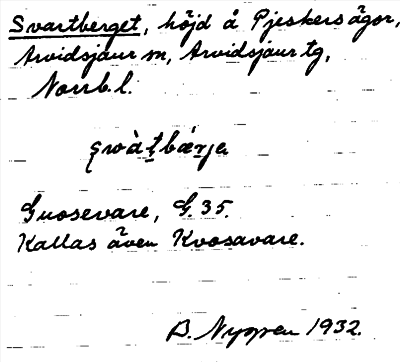 Svartberget, höjd å Pjeskers ägor,
Arvidsjaur sn, Arvidsjaur tg,
Norrb. l.
Guosevare, G. 35.
Kallas även Kvosavare.
B. Nygren 1932.